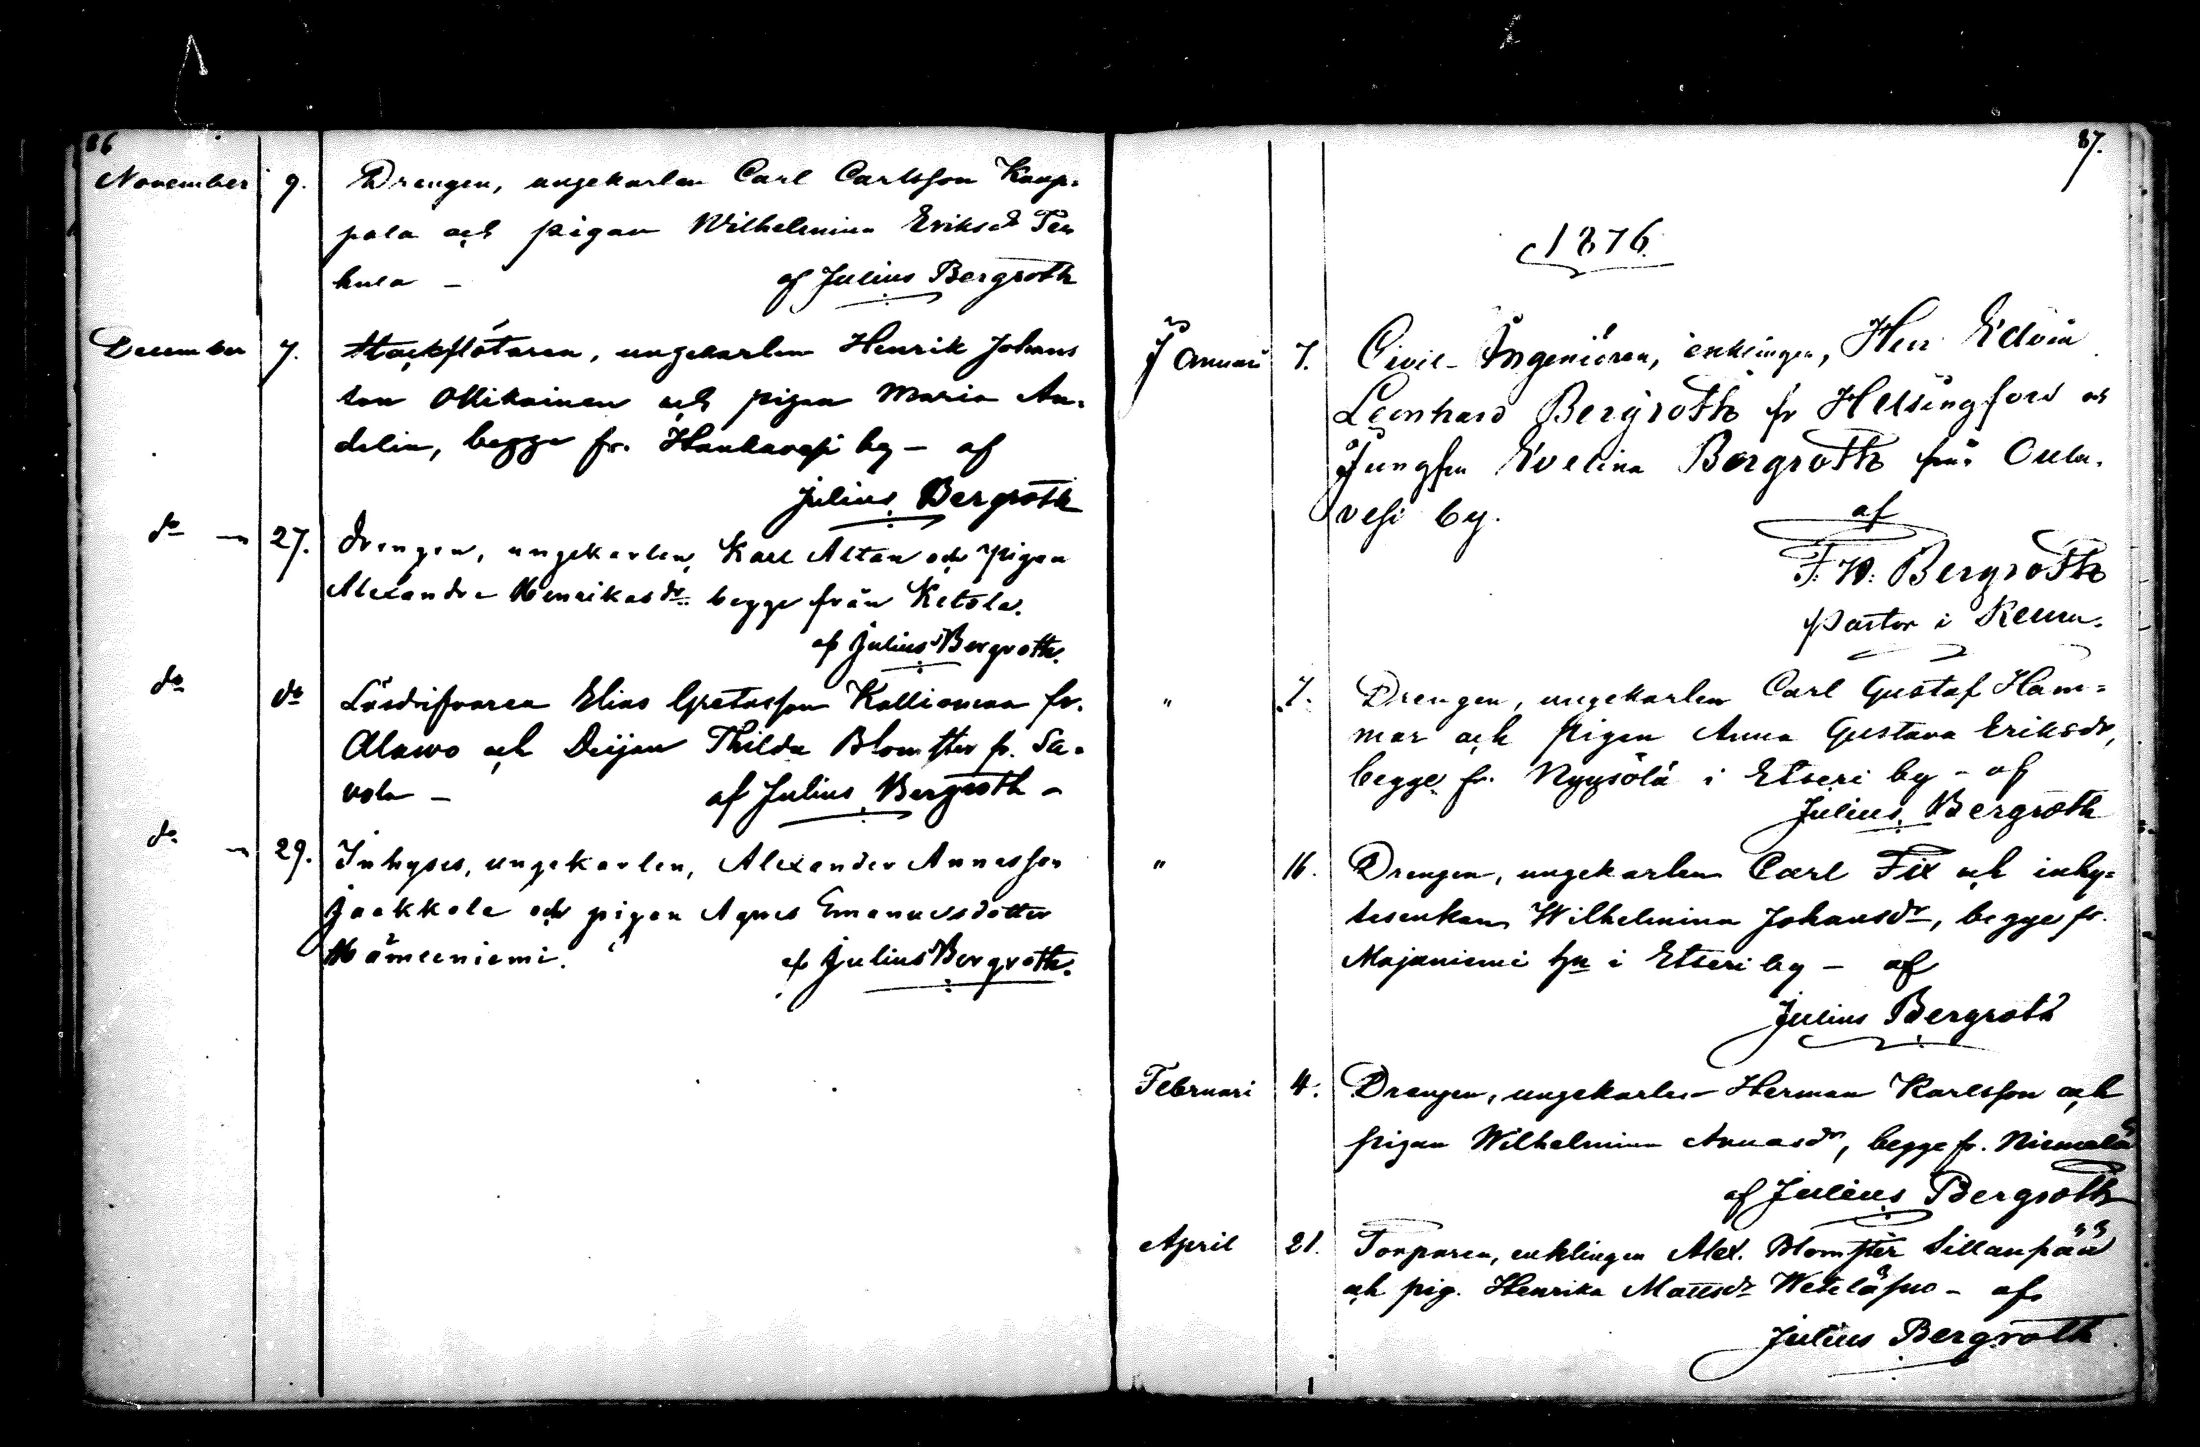 86
November 9. Drengen, ungekarlen Carl Carlsson Kaup-
pala och pigan Wilhelmina Eriksdr Ten
hula —
af Julius Bergroth
December 7. Stockflötaren, ungekarlen Henrik Johans
son Ollikainen och pigan Maria An-
delin, begge fr. Hankavesi by — af
Julius Bergroth
do — 27. Drengen, ungekarlen, Karl Altan och pigan
Alexandra Henriksdr begge från Ketola.
af Julius Bergroth.
do do Lösdrifvaren Elias Gretasson Kallioman fr.
Alavo och Deijan Thilda Blomster fr. Sa-
vola —
af Julius Bergroth —
do — 29. Inhyses, ungekarlen, Alexander Annasson
Jaakkola och pigan Agnes Emanuelsdotter
Hämeeniemi.
af Julius Bergroth.
87.
1876.
Januari 7. Civil-Ingeniören, enklingen, Herr Edvin
Leonhard Bergroth fr Helsingfors och
Jungfru Evelina Bergroth från Oula-
vesi by.
af
F. W. Bergroth
pastor i Keuru.
" 7. Drengen, ungekarlen Carl Gustaf Ham-
mar och pigan Anna Gustava Eriksdr,
begge fr. Nyysölä i Etseri by — af
Julius Bergroth
" 16. Drengen, ungekarlen Carl Fix och inhy-
sesenkan Wilhelmina Johansdr, begge fr.
Majaniemi hn i Etseri by — af
Julius Bergroth
Februari 4. Drengen, ungekarlen Herman Karlsson och
pigan Wilhelmina Annasdr, begge fr. Niemelä
af Julius Bergroth
April 21. Torparen, enklingen Alex. Blomster Sillanpää
och pig. Henrika Mattsdr Weteläsuo — af
Julius Bergroth